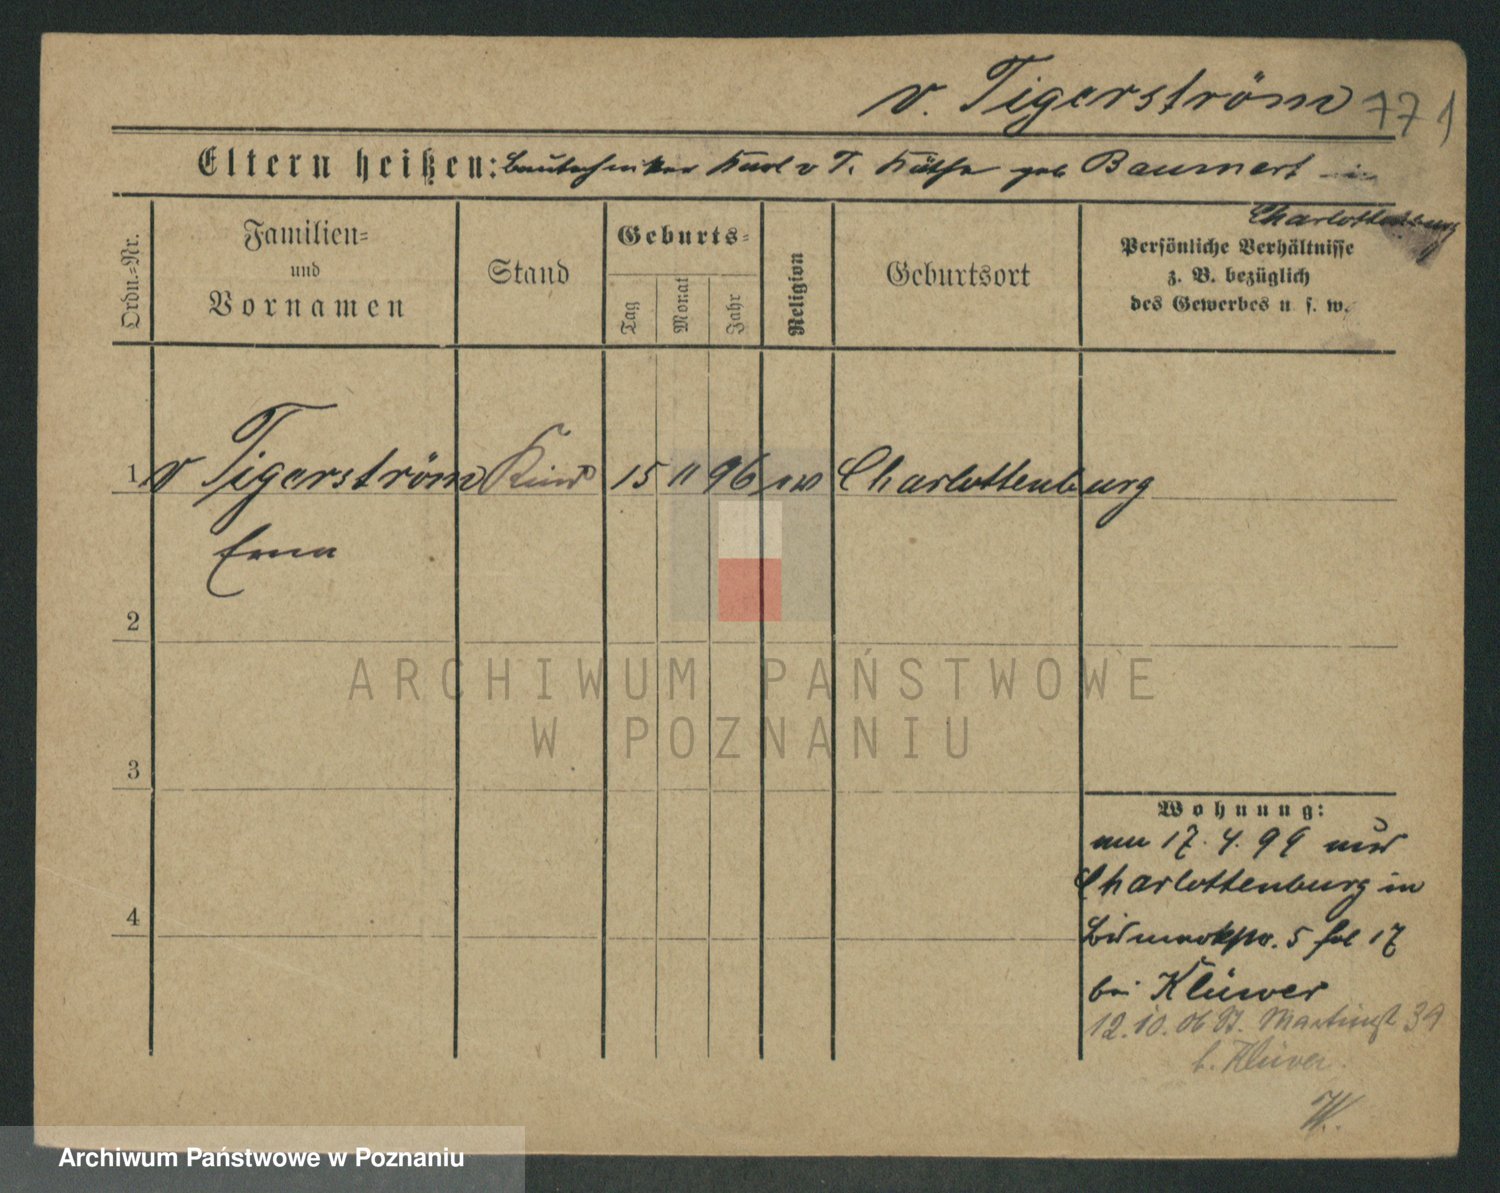 v. Tigerström 771
Eltern heißen: Bautechniker Karl v T. Käthe geb Baumert in
Charlottenburg
Ordn.-Nr.
Familien-
und
Vornamen
Stand
Geburts-
Tag
Monat
Jahr
Religion
Geburtsort
Persönliche Verhältnisse
z. B. bezüglich
des Gewerbes u. s. w.
1 v Tigerström Kind 15 11 96 ev Charlottenburg
Erna
2
3
4
Wohnung:
am 17. 4. 99 aus
Charlottenburg in
Bismarckstr. 5 fol 17
bei Klüwer
12.10.06 St. Martinst 39
b. Klüver.
W.
ARCHIWUM PAŃSTWOWE
W POZNANIU
Archiwum Państwowe w Poznaniu